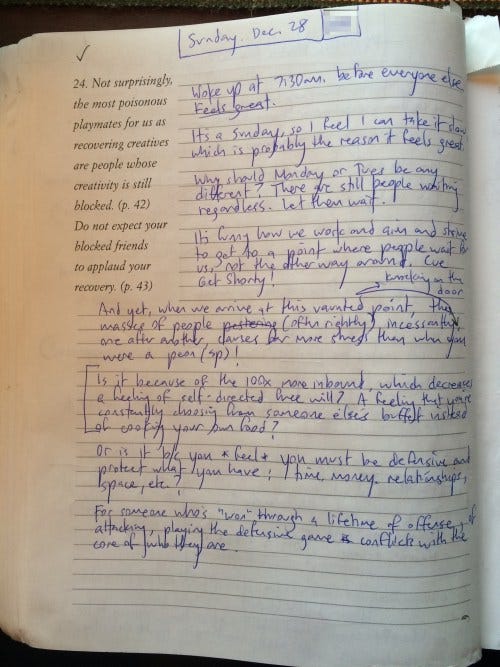 Sunday, Dec. 28
24. Not surprisingly,
the most poisonous
playmates for us as
recovering creatives
are people whose
creativity is still
blocked. (p. 42)
Do not expect your
blocked friends
to applaud your
recovery. (p. 43)
Woke up at 7:30am. before everyone else.
Feels great.
It's a Sunday, so I feel I can take it slow,
which is probably the reason it feels great.
Why should Monday or Tues be any
different? There are still people waiting
regardless. Let them wait.
It's funny how we work and aim and strive
to get to a point where people wait for
us, not the other way around. Cue
Get Shorty!
knocking on the
door
And yet, when we arrive at this vaunted point, the
masses of people pestering (often rightly) incessantly,
one after another, causes far more stress than when you
were a peon (sp)!
Is it because of the 100x more inbound, which decreases
a feeling of self-directed free will? A feeling that you're
constantly choosing from someone else's buffet instead
of cooking your own food?
Or is it b/c you *feel* you must be defensive and
protect what you have: time, money, relationships,
space, etc.?
For someone who's "won" through a lifetime of offense, of
attacking, playing the defensive game is conflict with the
core of who they are.